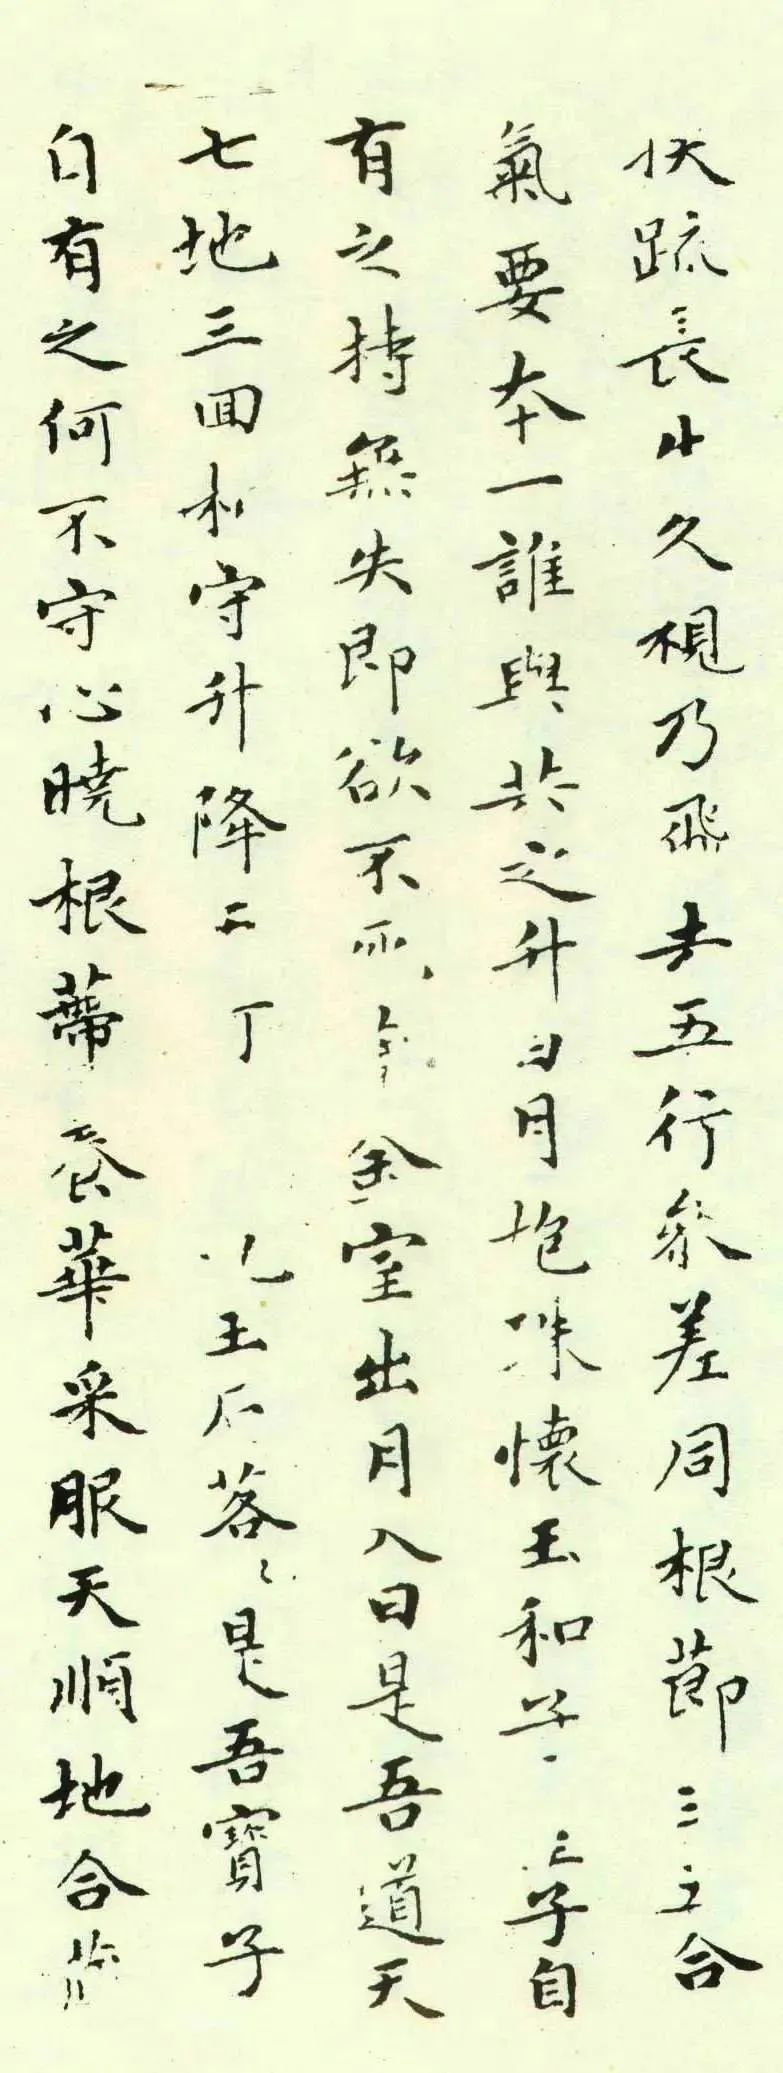 伏疏長生久視乃飛去五行參差同根節三五合
氣要本一誰與共之升日月抱珠懷玉和子室子自
有之持無失即欲不死藏金室出月入日是吾道天
七地三回相守升降進退合乃以玉石落〻是吾寶子
自有之何不守心曉根蒂養華采服天順地合藏